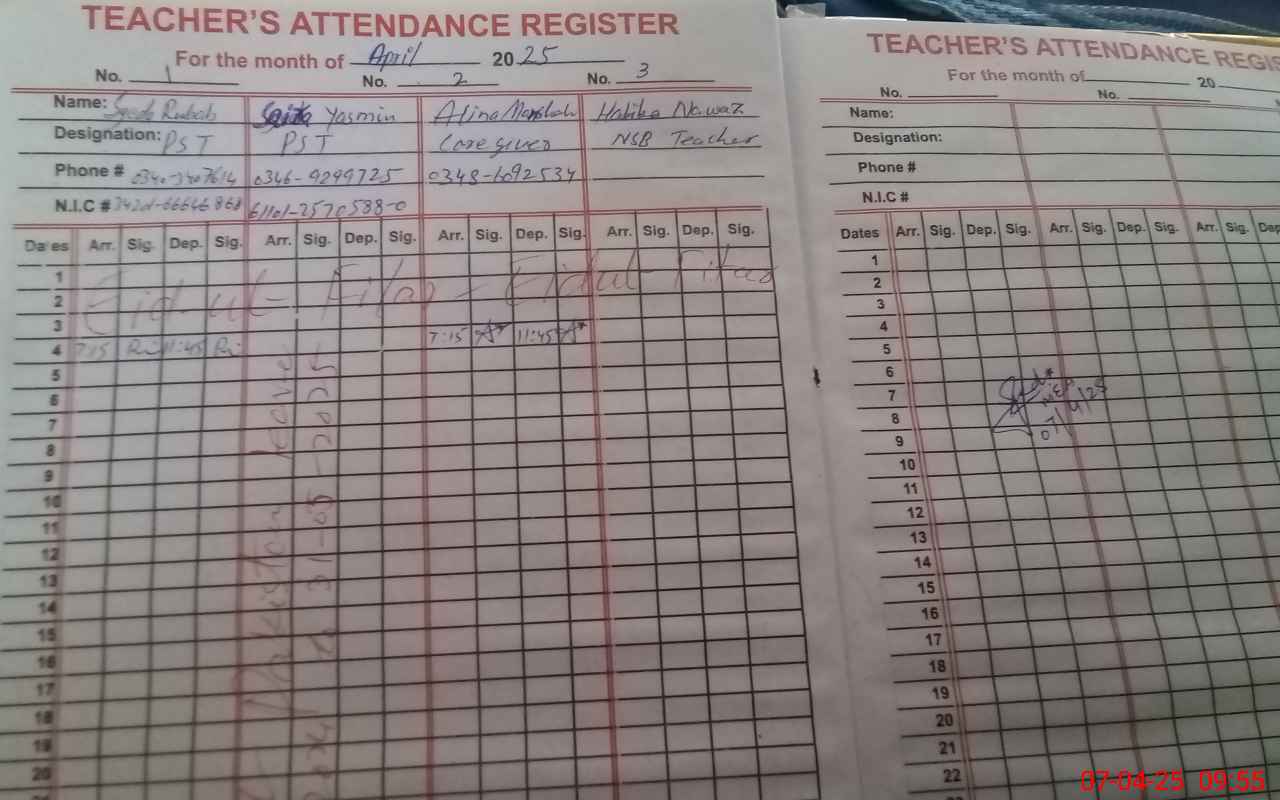 TEACHER'S ATTENDANCE REGISTER
For the month of April 2025
No. 1 No. 2 No. 3
Name: Syeda Rubab Yasmin Halika Nawaz
Designation: PST PST Caregiver NSB Teacher
Phone # 0346-9299725 0348-6092534
N.I.C # 61101-2570588-0
Dates Arr. Sig. Dep. Sig. Arr. Sig. Dep. Sig. Arr. Sig. Dep. Sig. Arr. Sig. Dep. Sig.
1
2 Eid-ul-Fitar - Eidul-Fitar
3
7:15 11:45
4 7:15 11:45
5
6
7
8
9
10
11
12
13
14
15
16
17
18
19
20
Pakistan leave
to 31-05-2025
TEACHER'S ATTENDANCE REGIS
For the month of 20
No. No.
Name:
Designation:
Phone #
N.I.C #
Dates Arr. Sig. Dep. Sig. Arr. Sig. Dep. Sig. Arr. Sig. Dep
1
2
3
4
5
6
7
8
07/4/25
9
10
11
12
13
14
15
16
17
18
19
20
21
22
07-04-25 09:55